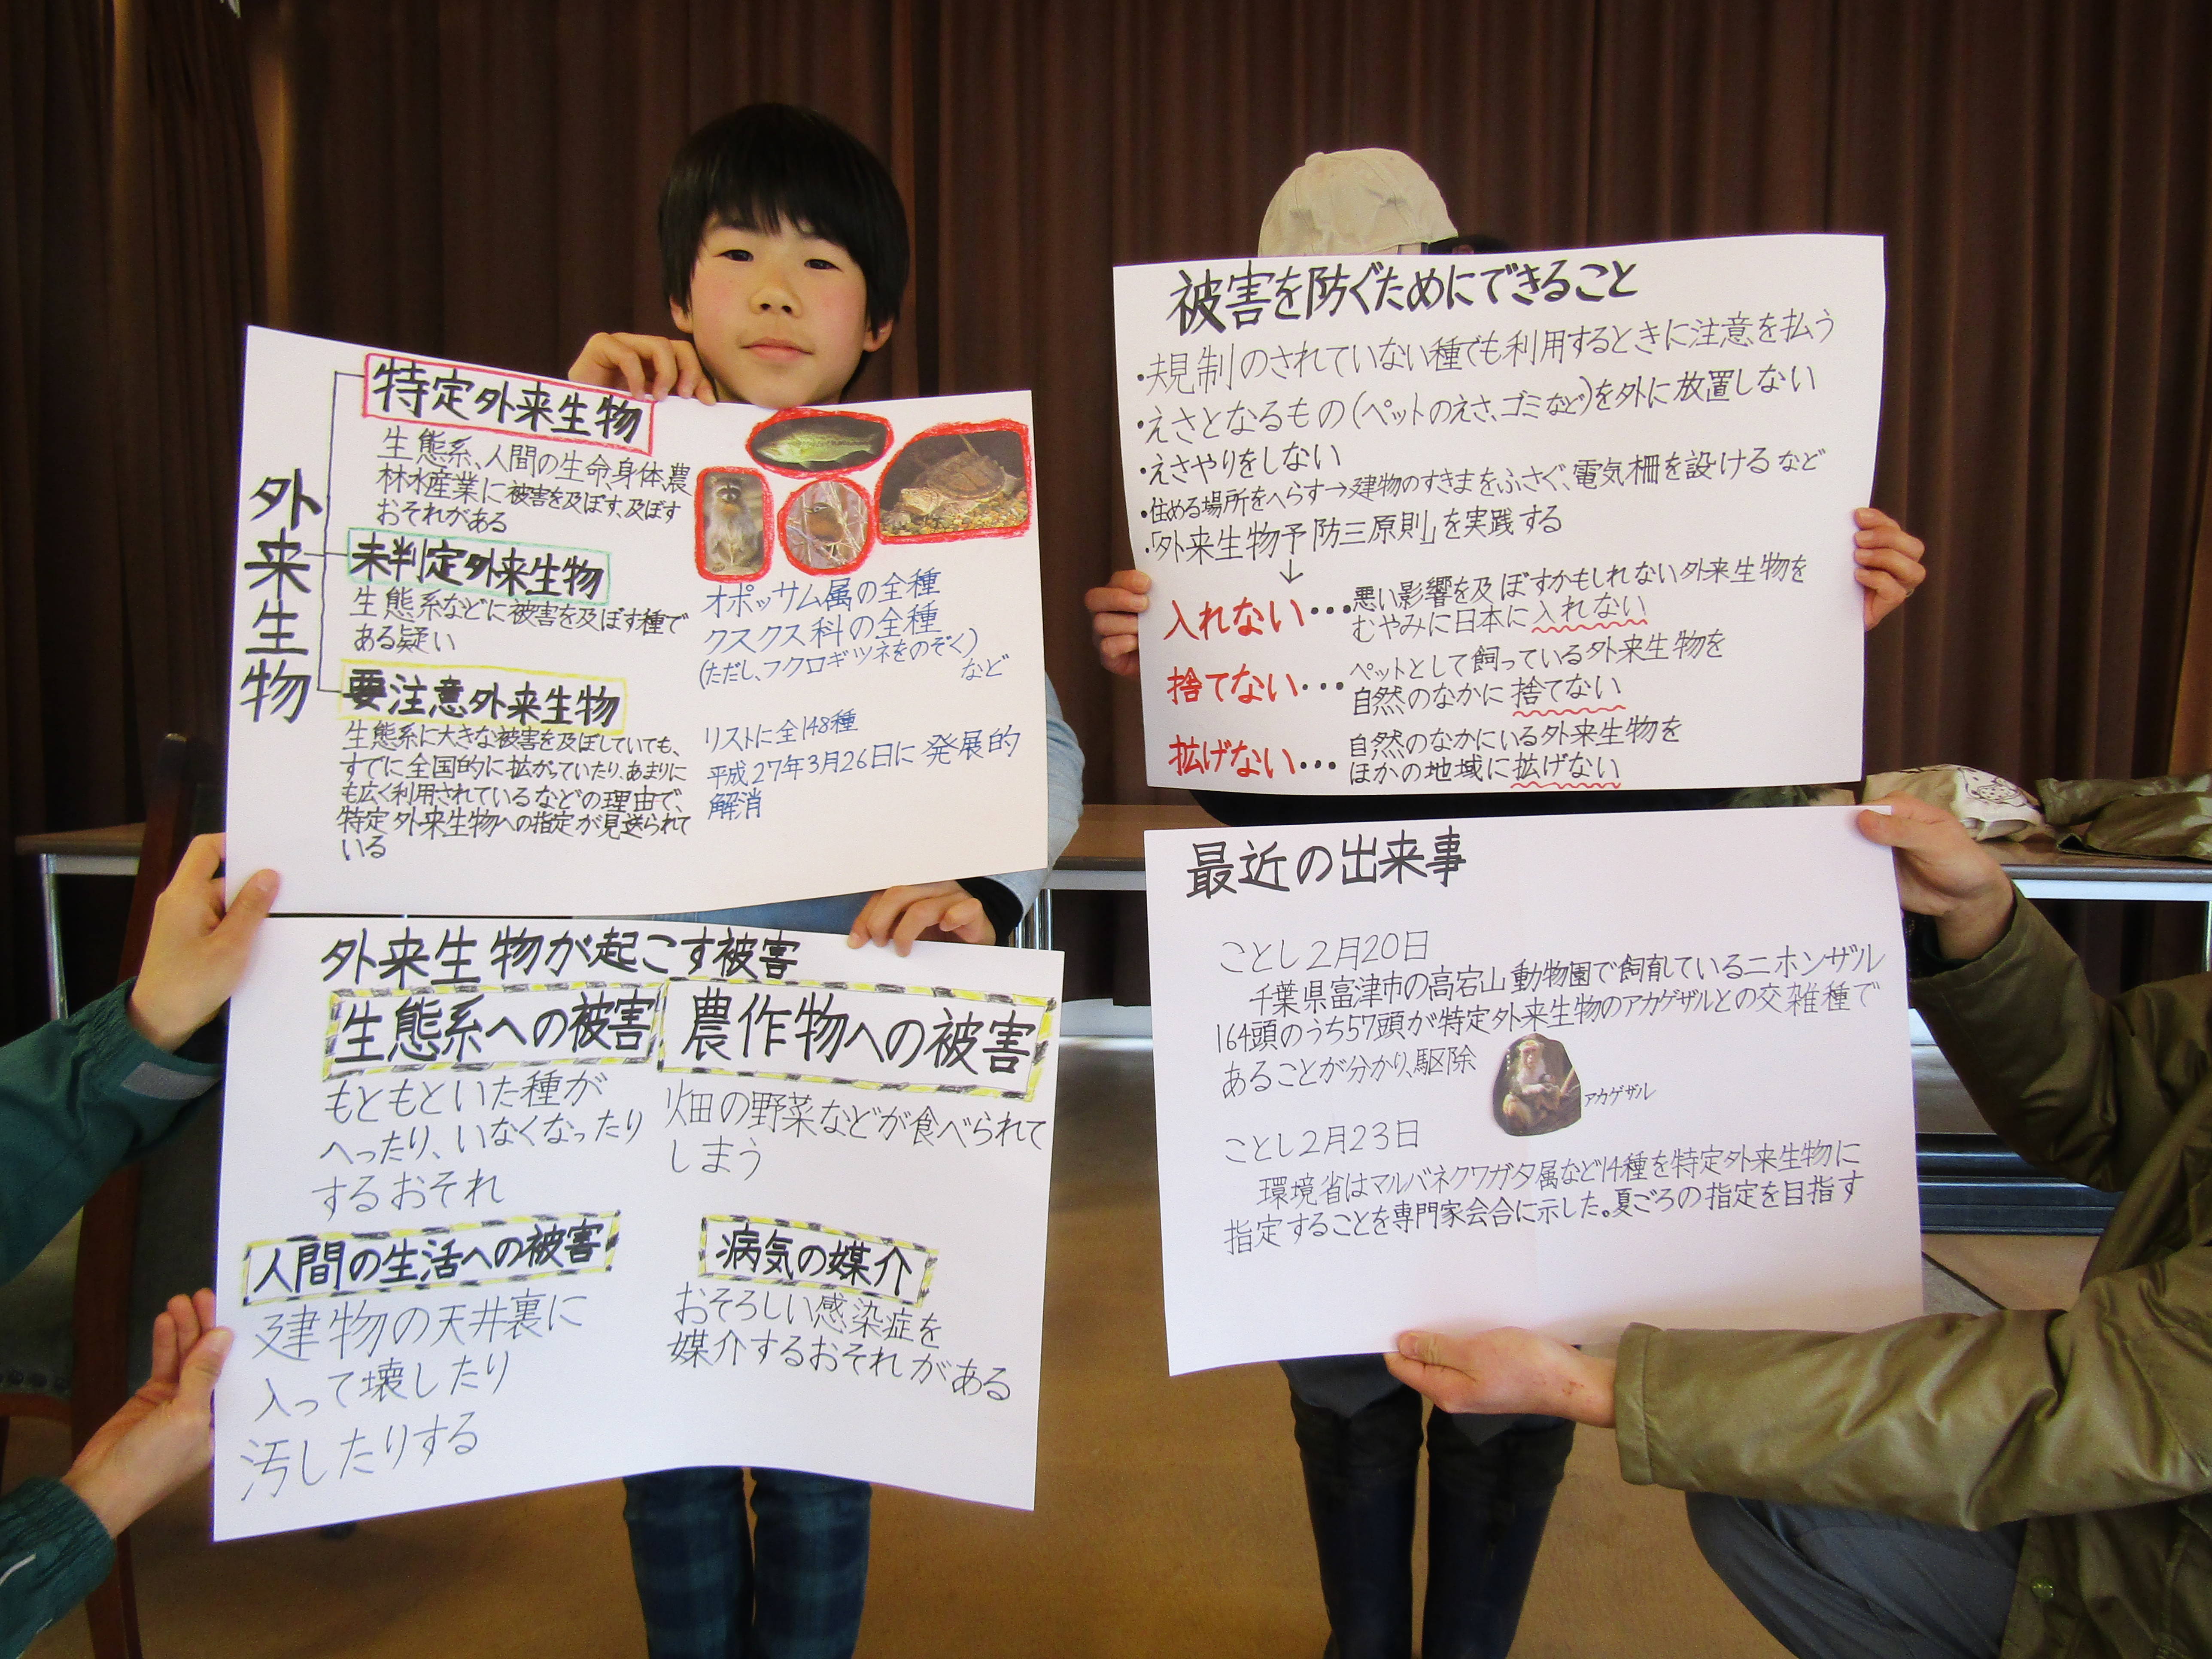 外来生物
特定外来生物
生態系、人間の生命、身体、農
林水産業に被害を及ぼす、及ぼす
おそれがある
未判定外来生物
生態系などに被害を及ぼす種で
ある疑い
要注意外来生物
生態系に大きな被害を及ぼしていても、
すでに全国的に拡がっていたり、あまりに
も広く利用されているなどの理由で、
特定外来生物への指定が見送られて
いる
オポッサム属の全種
クスクス科の全種
(ただし、フクロギツネをのぞく)
など
リストに全148種
平成27年3月26日に発展的
解消
外来生物が起こす被害
生態系への被害
もともといた種が
へったり、いなくなったり
するおそれ
農作物への被害
畑の野菜などが食べられて
しまう
人間の生活への被害
建物の天井裏に
入って壊したり
汚したりする
病気の媒介
おそろしい感染症を
媒介するおそれがある
被害を防ぐためにできること
・規制のされていない種でも利用するときに注意を払う
・えさとなるもの(ペットのえさ、ゴミなど)を外に放置しない
・えさやりをしない
・住める場所をへらす→建物のすきまをふさぐ、電気柵を設けるなど
・「外来生物予防三原則」を実践する
↓
入れない・・・悪い影響を及ぼすかもしれない外来生物を
むやみに日本に入れない
捨てない・・・ペットとして飼っている外来生物を
自然のなかに捨てない
拡げない・・・自然のなかにいる外来生物を
ほかの地域に拡げない
最近の出来事
ことし2月20日
千葉県富津市の高宕山動物園で飼育しているニホンザル
164頭のうち57頭が特定外来生物のアカゲザルとの交雑種で
あることが分かり、駆除
アカゲザル
ことし2月23日
環境省はマルバネクワガタ属など14種を特定外来生物に
指定することを専門家会合に示した。夏ごろの指定を目指す